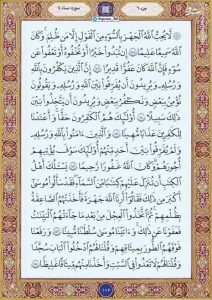 جزء ٦
سوره نساء ٤
لَّا يُحِبُّ ٱللَّهُ ٱلْجَهْرَ بِٱلسُّوٓءِ مِنَ ٱلْقَوْلِ إِلَّا مَن ظُلِمَ وَكَانَ
ٱللَّهُ سَمِيعًا عَلِيمًا إِن تُبْدُوا۟ خَيْرًا أَوْ تُخْفُوهُ أَوْ تَعْفُوا۟ عَن
سُوٓءٍ فَإِنَّ ٱللَّهَ كَانَ عَفُوًّا قَدِيرًا إِنَّ ٱلَّذِينَ يَكْفُرُونَ بِٱللَّهِ
وَرُسُلِهِۦ وَيُرِيدُونَ أَن يُفَرِّقُوا۟ بَيْنَ ٱللَّهِ وَرُسُلِهِۦ وَيَقُولُونَ
نُؤْمِنُ بِبَعْضٍ وَنَكْفُرُ بِبَعْضٍ وَيُرِيدُونَ أَن يَتَّخِذُوا۟ بَيْنَ
ذَٰلِكَ سَبِيلًا أُو۟لَٰٓئِكَ هُمُ ٱلْكَٰفِرُونَ حَقًّا وَأَعْتَدْنَا
لِلْكَٰفِرِينَ عَذَابًا مُّهِينًا وَٱلَّذِينَ ءَامَنُوا۟ بِٱللَّهِ وَرُسُلِهِۦ
وَلَمْ يُفَرِّقُوا۟ بَيْنَ أَحَدٍ مِّنْهُمْ أُو۟لَٰٓئِكَ سَوْفَ يُؤْتِيهِمْ
أُجُورَهُمْ وَكَانَ ٱللَّهُ غَفُورًا رَّحِيمًا يَسْـَٔلُكَ أَهْلُ
ٱلْكِتَٰبِ أَن تُنَزِّلَ عَلَيْهِمْ كِتَٰبًا مِّنَ ٱلسَّمَآءِ فَقَدْ سَأَلُوا۟ مُوسَىٰٓ
أَكْبَرَ مِن ذَٰلِكَ فَقَالُوٓا۟ أَرِنَا ٱللَّهَ جَهْرَةً فَأَخَذَتْهُمُ ٱلصَّٰعِقَةُ
بِظُلْمِهِمْ ثُمَّ ٱتَّخَذُوا۟ ٱلْعِجْلَ مِنۢ بَعْدِ مَا جَآءَتْهُمُ ٱلْبَيِّنَٰتُ
فَعَفَوْنَا عَن ذَٰلِكَ وَءَاتَيْنَا مُوسَىٰ سُلْطَٰنًا مُّبِينًا وَرَفَعْنَا
فَوْقَهُمُ ٱلطُّورَ بِمِيثَٰقِهِمْ وَقُلْنَا لَهُمُ ٱدْخُلُوا۟ ٱلْبَابَ سُجَّدًا
وَقُلْنَا لَهُمْ لَا تَعْدُوا۟ فِى ٱلسَّبْتِ وَأَخَذْنَا مِنْهُم مِّيثَٰقًا غَلِيظًا
١٠٢